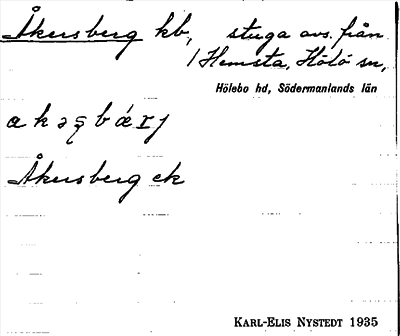 Åkersberg kb, stuga avs. från
1 Hemsta, Hölö sn,
Hölebo hd, Södermanlands län
Åkersberg ek
KARL-ELIS NYSTEDT 1935